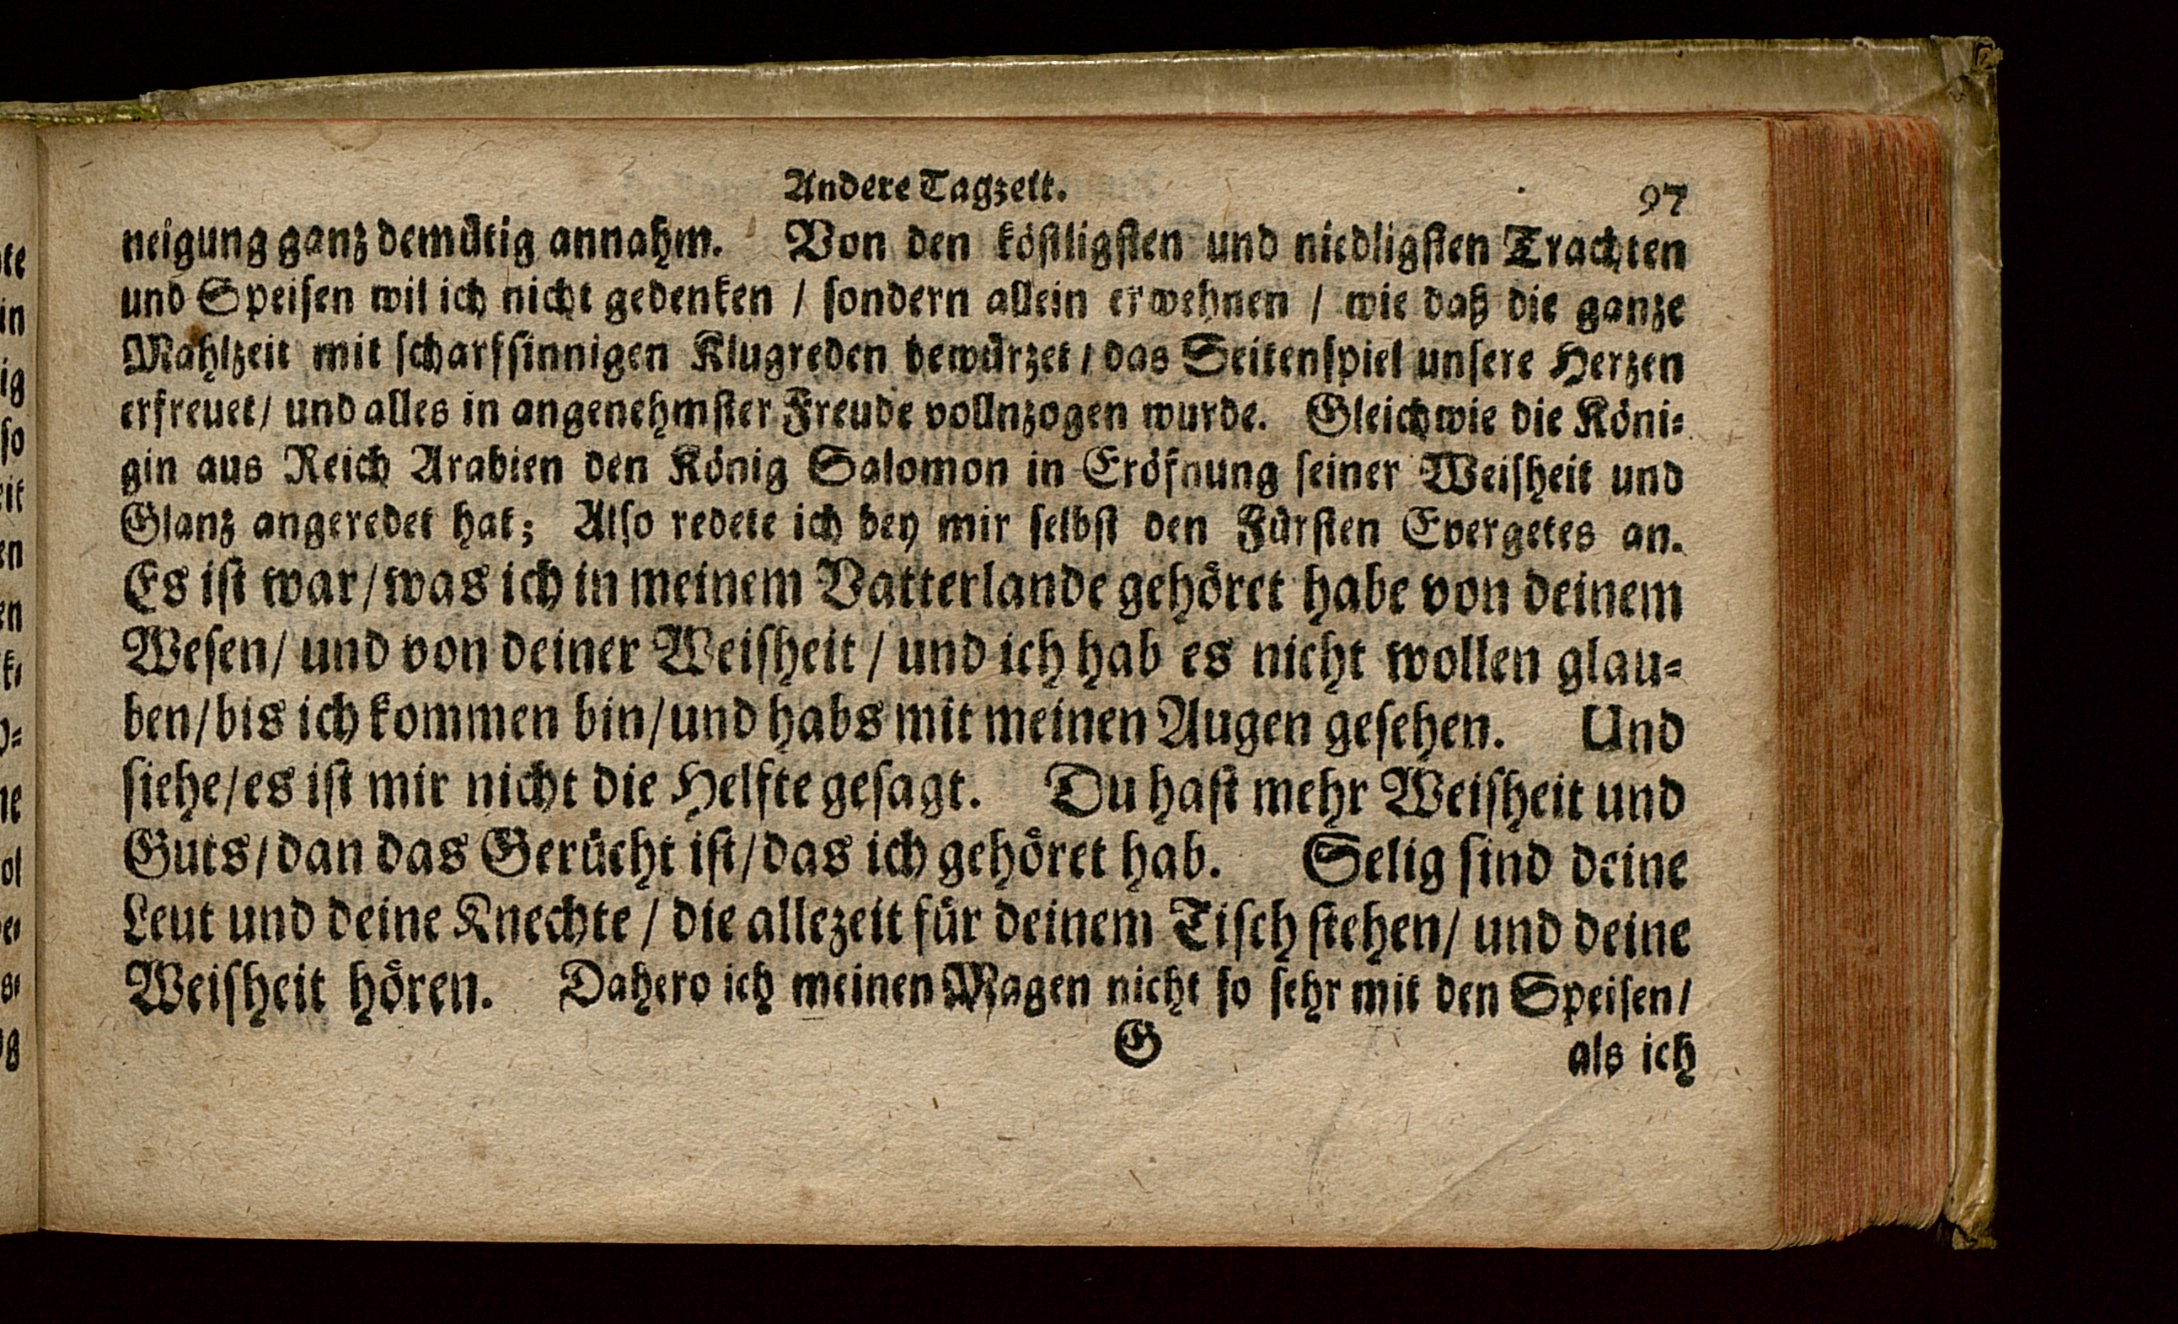 Andere Tagzeit. 97
neigung ganz demütig annahm. Von den köstligsten und niedligsten Trachten
und Speisen wil ich nicht gedenken / sondern allein erwehnen / wie daß die ganze
Mahlzeit mit scharfsinnigen Klugreden bewürzet / das Seitenspiel unsere Herzen
erfreuet / und alles in angenehmster Freude vollnzogen wurde. Gleichwie die Köni-
gin aus Reich Arabien den König Salomon in Eröfnung seiner Weisheit und
Glanz angeredet hat; Also redete ich bey mir selbst den Fürsten Evergetes an.
Es ist war / was ich in meinem Vatterlande gehöret habe von deinem
Wesen / und von deiner Weisheit / und ich hab es nicht wollen glau-
ben / bis ich kommen bin / und habs mit meinen Augen gesehen. Und
siehe / es ist mir nicht die Helfte gesagt. Du hast mehr Weisheit und
Guts / dan das Gerücht ist / das ich gehöret hab. Selig sind deine
Leut und deine Knechte / die allezeit für deinem Tisch stehen / und deine
Weisheit hören. Dahero ich meinen Magen nicht so sehr mit den Speisen /
G als ich